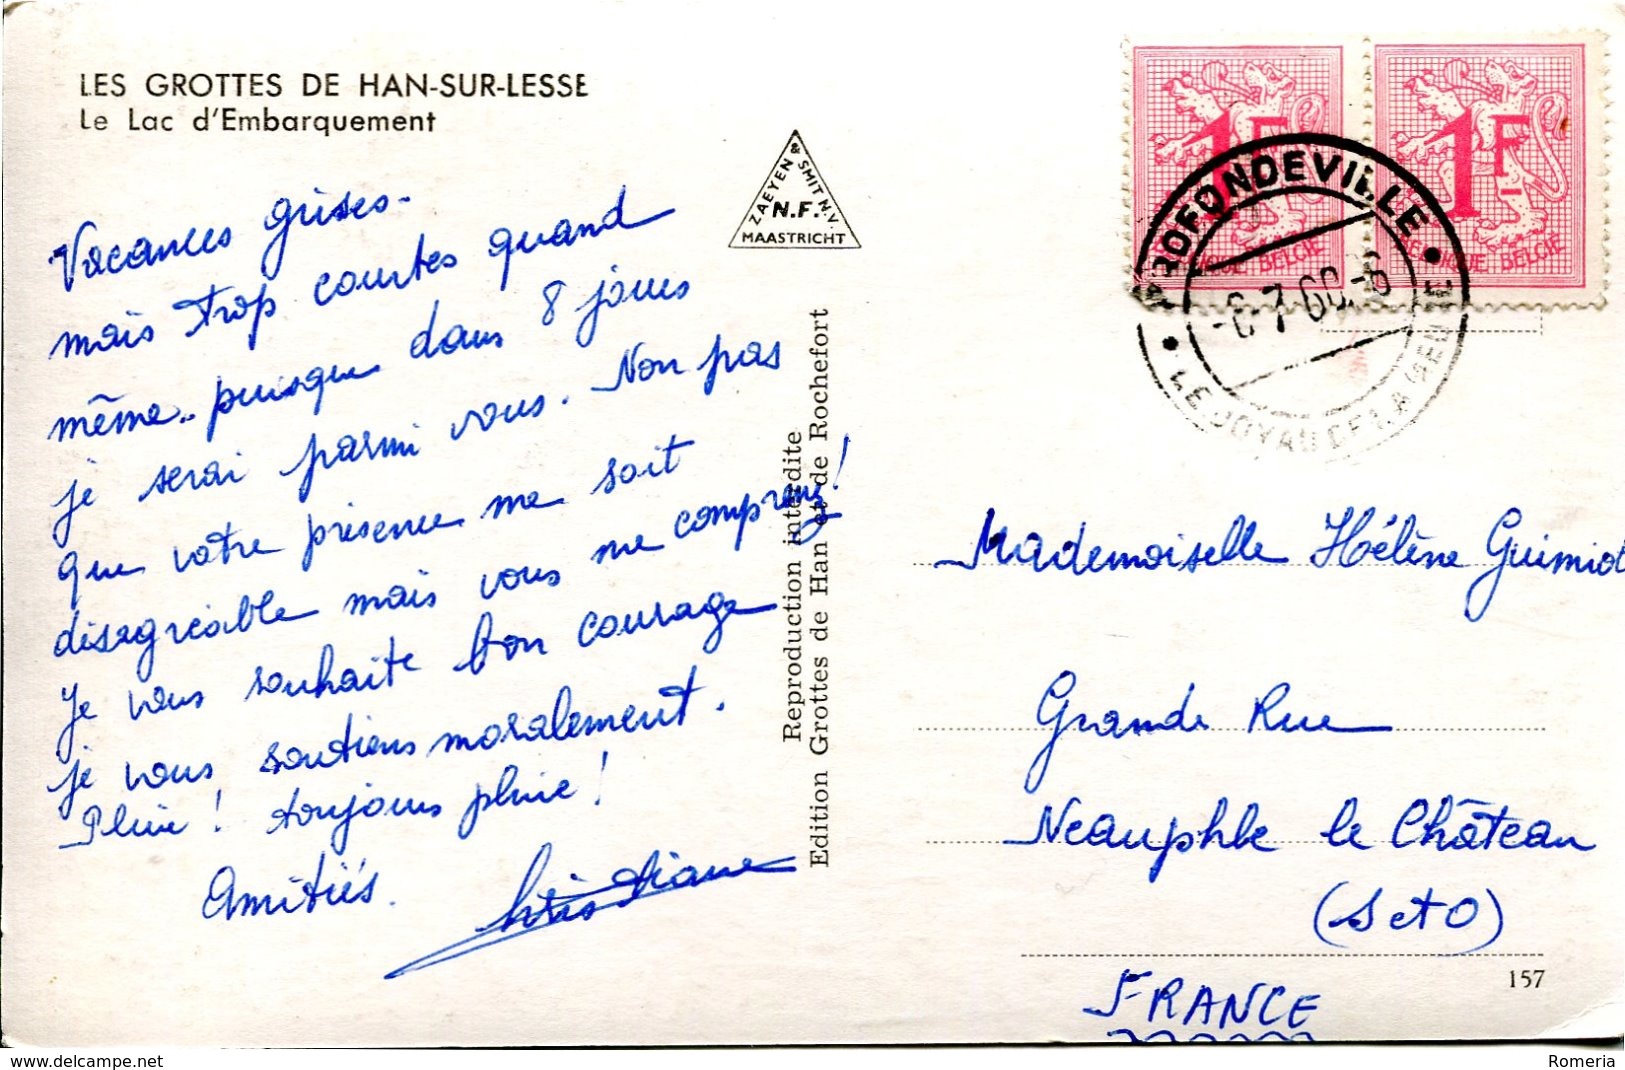 LES GROTTES DE HAN-SUR-LESSE
Le Lac d'Embarquement
Vacances grises-
mais trop courtes quand
même.. puisque dans 8 jours
je serai parmi vous. Non pas
que votre présence me soit
désagréable mais vous me comprenez!
Je vous souhaite bon courage
je vous soutiens moralement.
Pluie! toujours pluie!
Amitiés.
Christiane
ZAEYEN & SMIT N.V.
N.F.
MAASTRICHT
Reproduction interdite
Edition Grottes de Han et de Rochefort
1F
BELGIE
1F
BELGIQUE BELGIE
PROFONDEVILLE
-6-7 60.-6
LE JOYAU DE LA MEUSE
Mademoiselle Hélène Guimiot
Grande Rue
Neauphle le Château
(S et O)
FRANCE
157
www.delcampe.net
Romeria